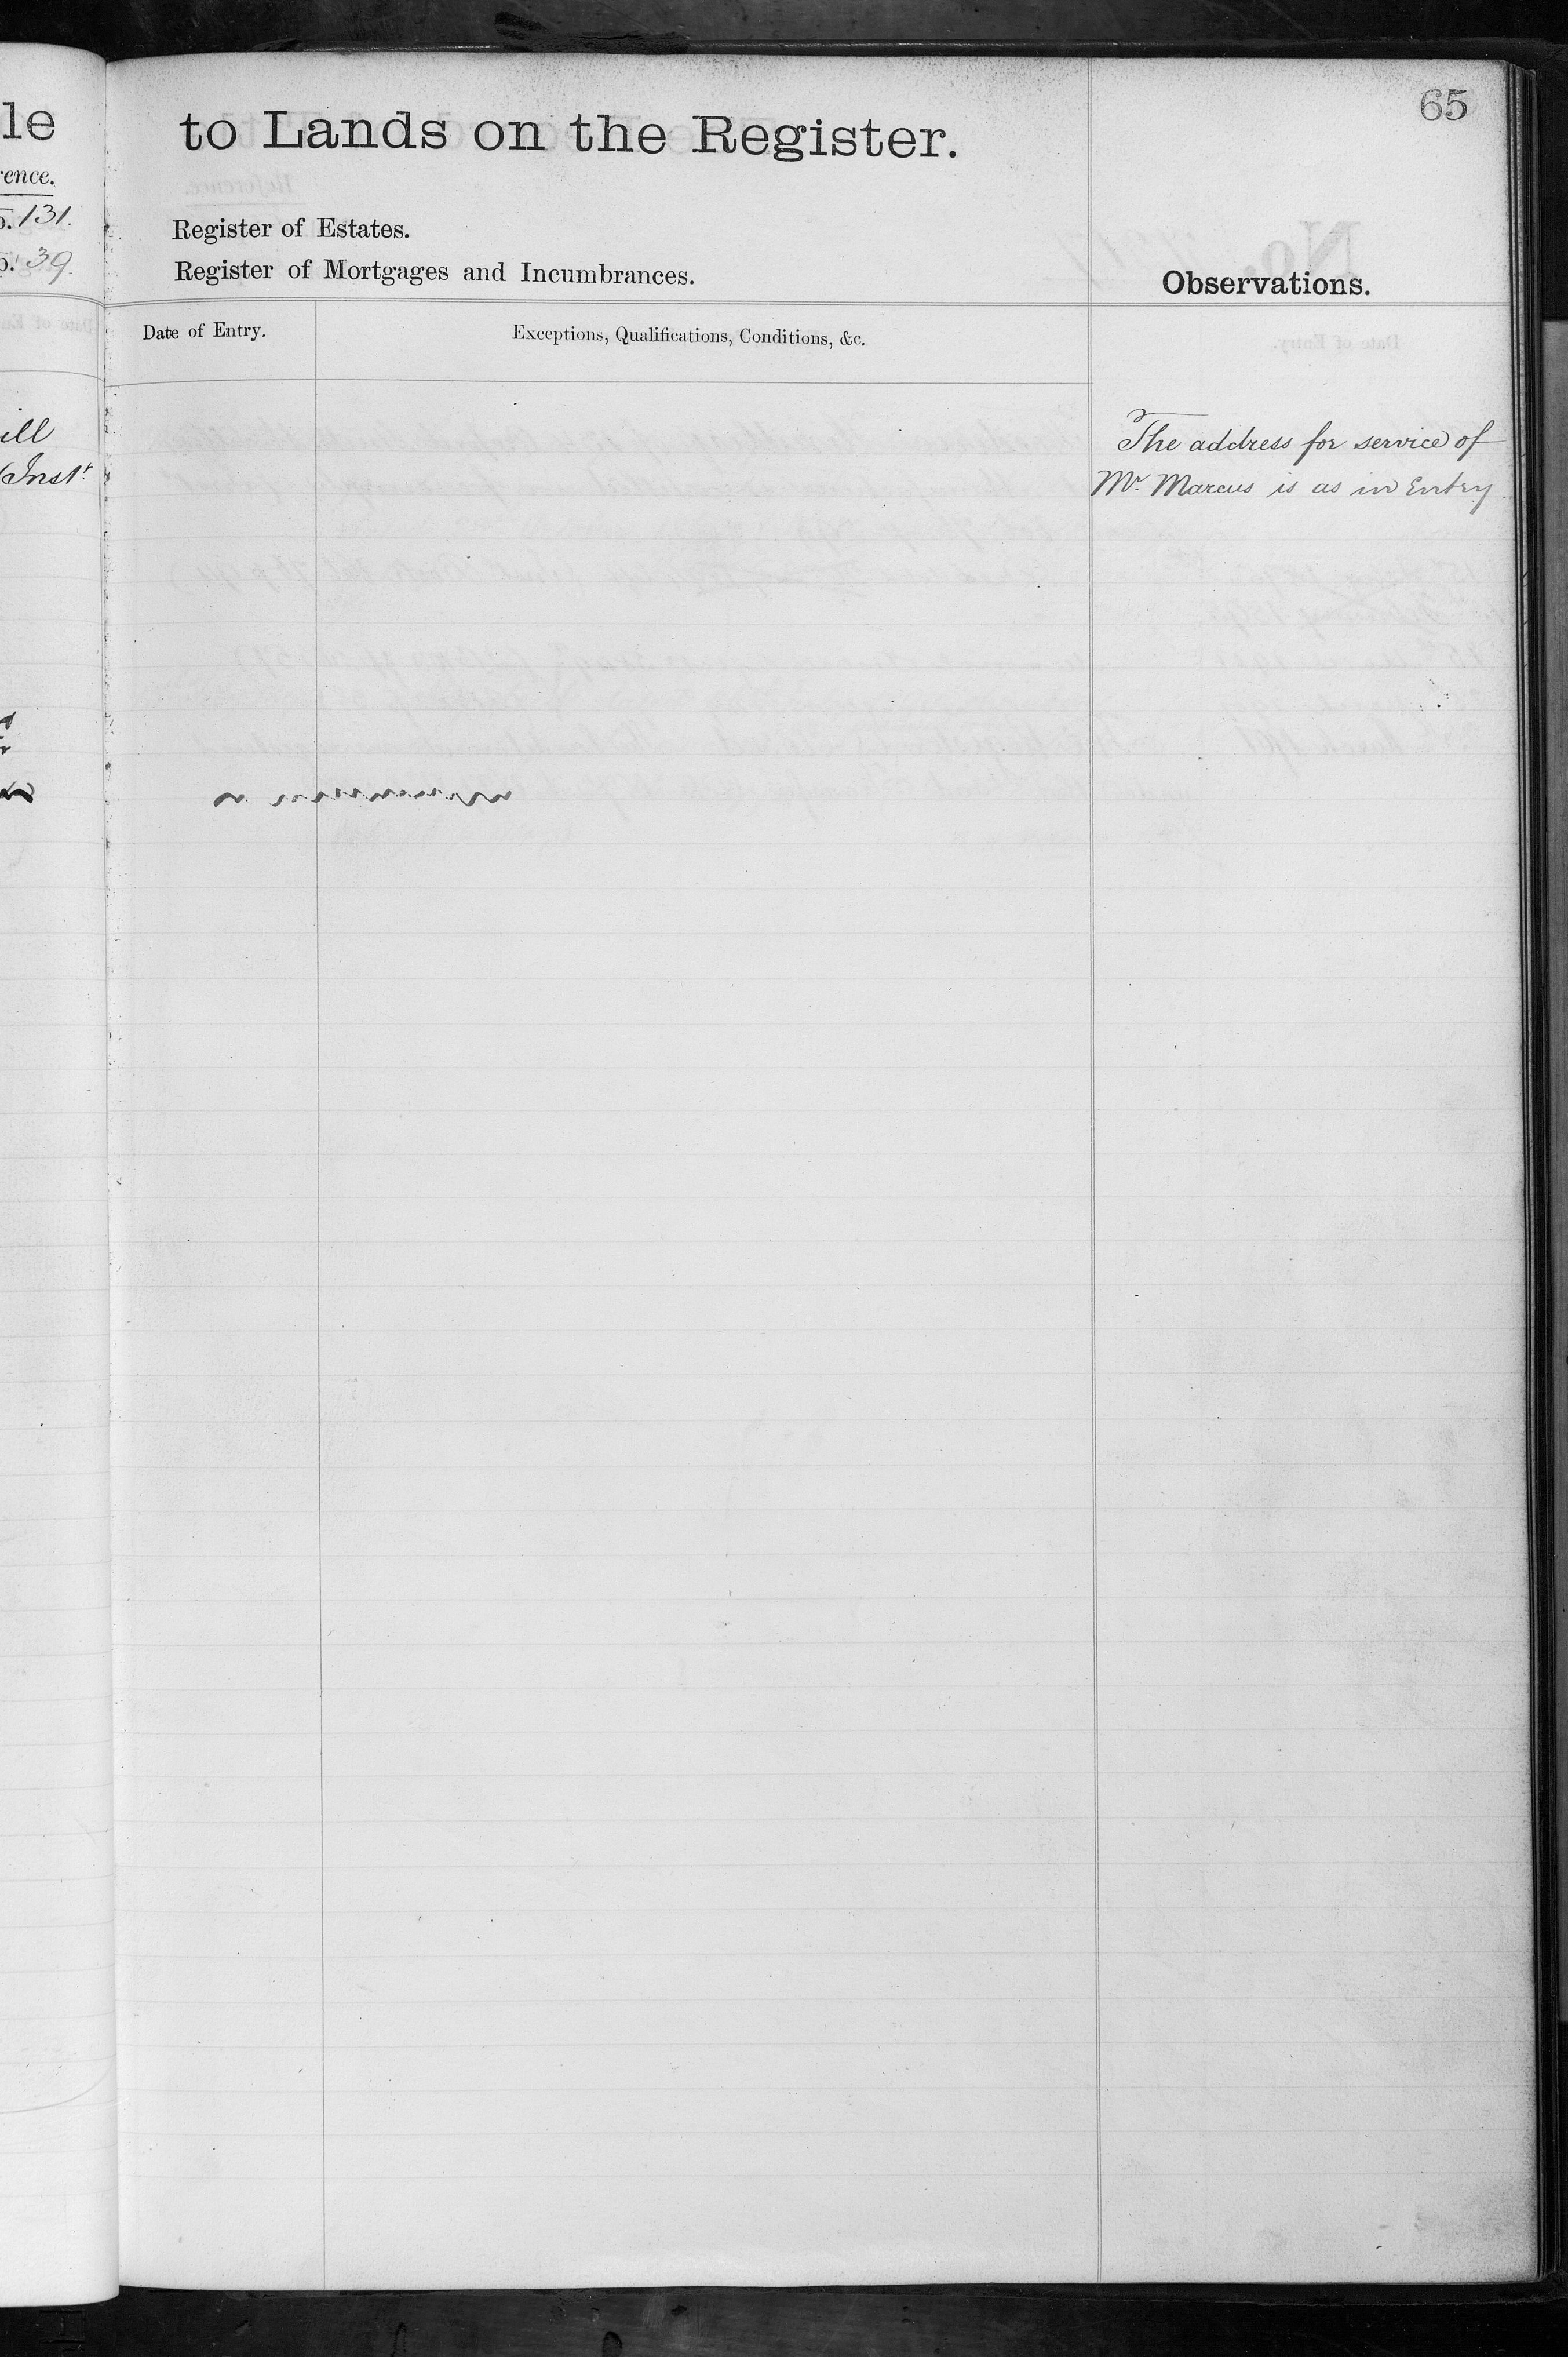 65
le
to Lands on the Register.
ence.
131.
Register of Estates.
39.
Register of Mortgages and Incumbrances.
Observations.
Date of Entry.
Exceptions, Qualifications, Conditions, &c.
ill
Inst.
The address for service of
Mr. Marcus is as in Entry